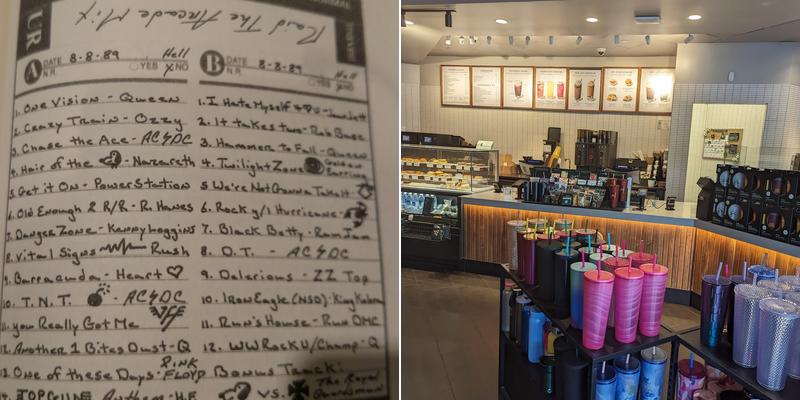 Raid The Arcade Mix
A DATE 8-8-89 Hell
N.R. YES XNO
1. One Vision - Queen
2. Crazy Train - Ozzy
3. Chase the Ace - AC⚡DC
4. Hair of the - Nazareth
5. Get it On - PowerStation
6. Old Enough 2 R/R - R. Hanes
7. DangerZone - Kenny Loggins
8. Vital Signs Rush
9. Barracuda - Heart ♡
10. T.N.T. - AC⚡DC
11. you Really Got Me
12. Another 1 Bites Dust - Q
13. One of these Days - PINK FLOYD
14. TOPGUN Anthem - H.F.
B DATE 8-8-89 Hell
N.R. YES XNO
1. I Hate Myself
2. It takes two - Rob Base
3. Hammer to Fall - Queen
4. Twilight Zone Golden Earring
5. We're Not Gonna Take It
6. Rock y/ Hurricane
7. Black Betty - RamJam
8. D.T. - AC⚡DC
9. Delirious - ZZ Top
10. Iron Eagle (NSD) - King Kobra
11. Run's House - Run DMC
12. WWRockU/Champ - Q
Bonus Track:
VS. The Royal Guardsmen